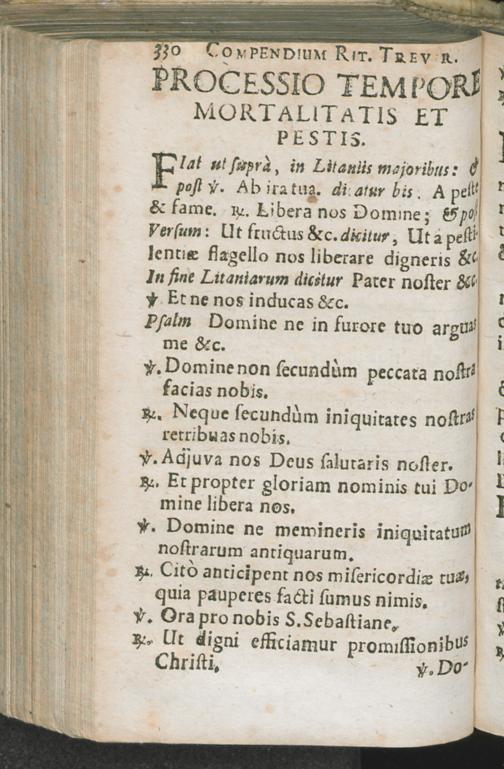 330 COMPENDIUM RIT. TREV R.
PROCESSIO TEMPORE
MORTALITATIS ET
PESTIS.
FIat ut ſuprà, in Litaniis majoribus: &
poſt ℣. Ab ira tua. dicatur bis. A peſte
& fame. ℟. Libera nos Domine; & poſt
Verſum: Ut fructus &c. dicitur, Ut a peſti-
lentiæ flagello nos liberare digneris &c.
In fine Litaniarum dicitur Pater noſter &c.
℣ Et ne nos inducas &c.
Pſalm Domine ne in furore tuo arguas
me &c.
℣. Domine non ſecundùm peccata noſtra
facias nobis.
℟. Neque ſecundùm iniquitates noſtras
retribuas nobis.
℣. Adjuva nos Deus ſalutaris noſter.
℟. Et propter gloriam nominis tui Do-
mine libera nos.
℣. Domine ne memineris iniquitatum
noſtrarum antiquarum.
℟. Citò anticipent nos miſericordiæ tuæ,
quia pauperes facti ſumus nimis.
℣. Ora pro nobis S. Sebaſtiane.
℟. Ut digni efficiamur promiſſionibus
Chriſti.
℣. Do-